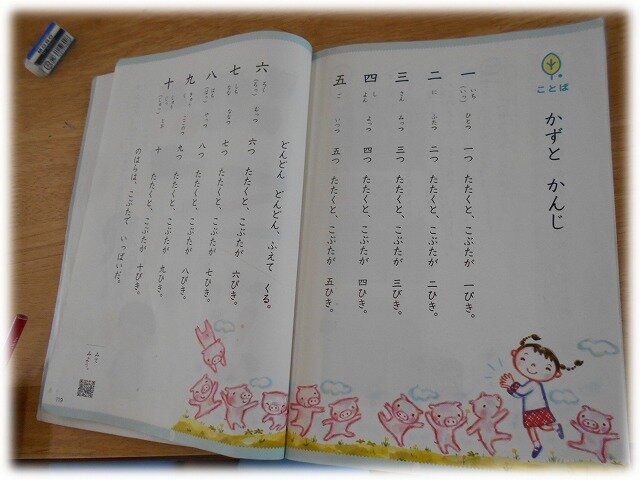 ことば
かずと かんじ
一 いち (いっ) ひとつ 一つ たたくと、こぶたが 一ぴき。
二 に ふたつ 二つ たたくと、こぶたが 二ひき。
三 さん みっつ 三つ たたくと、こぶたが 三びき。
四 し よん よっつ 四つ たたくと、こぶたが 四ひき。
五 ご いつつ 五つ たたくと、こぶたが 五ひき。
どんどん どんどん、ふえて くる。
六 ろく (ろっ) むっつ 六つ たたくと、こぶたが 六ぴき。
七 しち なな ななつ 七つ たたくと、こぶたが 七ひき。
八 はち (はっ) やっつ 八つ たたくと、こぶたが 八ぴき。
九 きゅう く ここのつ 九つ たたくと、こぶたが 九ひき。
十 じゅう (じっ) とお 十 たたくと、こぶたが 十ぴき。
のはらは、こぶたで いっぱいだ。